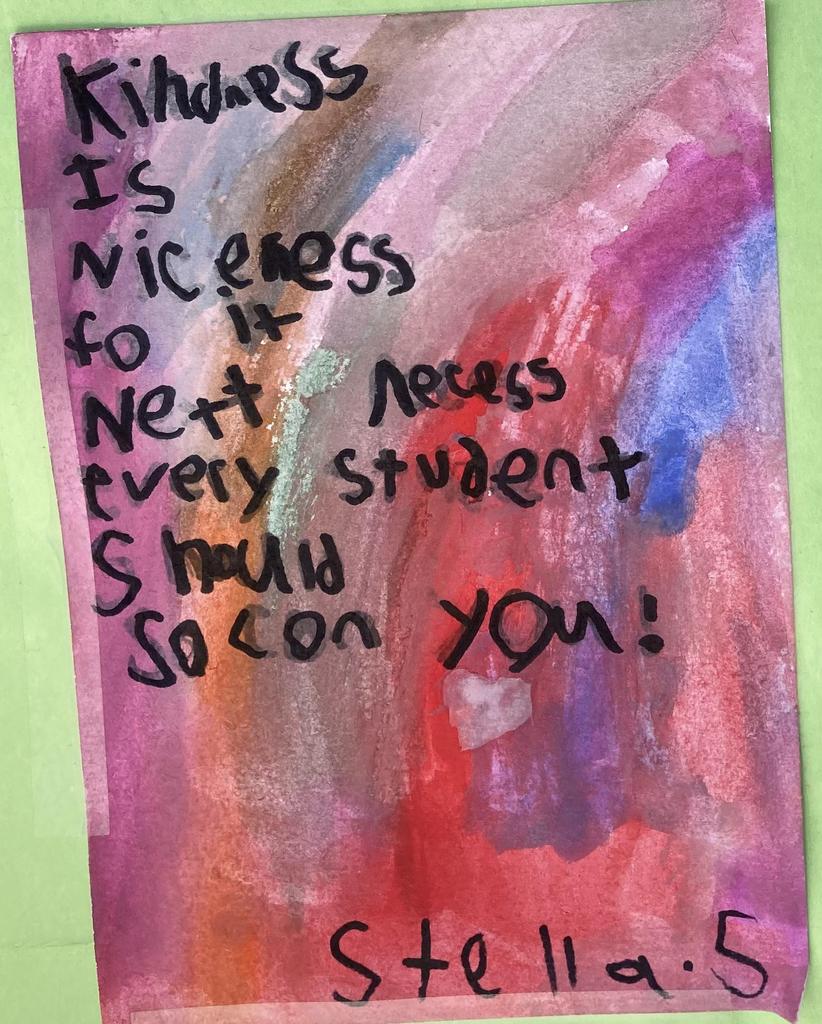 Kindness
Is
Niceness
to it
Nett necess
every student
Should
so con you!
Stella.S